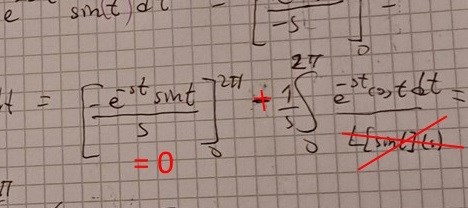 e sin(t) dt = [ -s ]0 =
dt = [ -e^-st sint / s ]0^2π + 1/s ∫0^2π e^-st cos t dt =
= 0 L[sint](s)
π